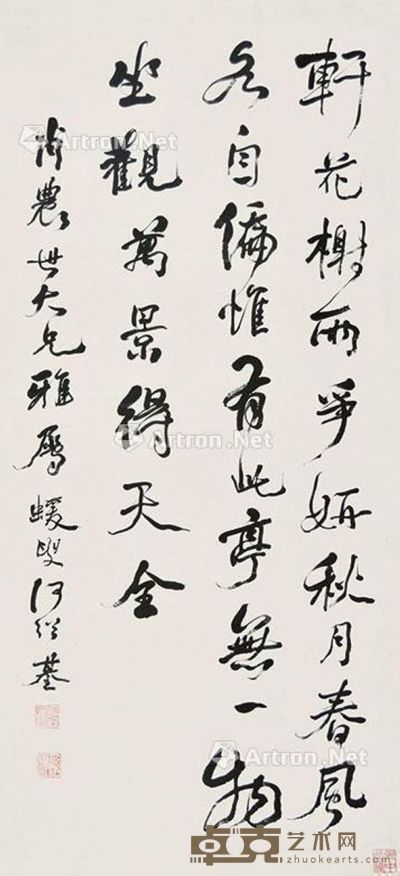 軒花榭兩爭妍秋月春風
各自偏惟有此亭無一物
坐觀萬景得天全
農世大兄雅屬蝯叟何紹基
Artron.Net
Artron.Net
Artron.Net
Artron.Net
Artron.Net
Artron.Net
卓克艺术网
zhuokearts.com